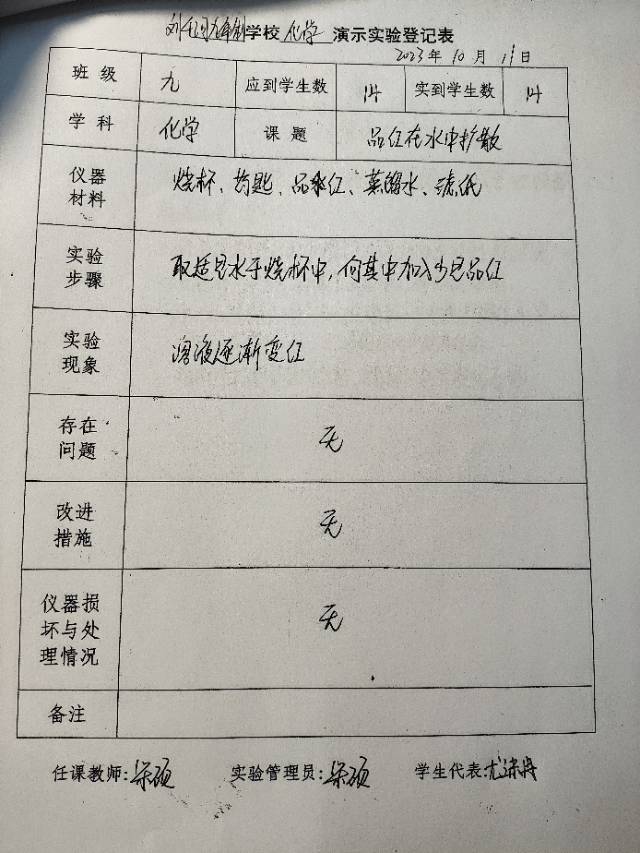 九年制学校 化学 演示实验登记表
2023年10月19日
班级 九 应到学生数 14 实到学生数 14
学科 化学 课题 品红在水中扩散
仪器材料 烧杯、药匙、品红、蒸馏水、滤纸
实验步骤 取适量水于烧杯中,向其中加入少量品红
实验现象 溶液逐渐变红
存在问题 无
改进措施 无
仪器损坏与处理情况 无
备注
任课教师: 实验管理员: 学生代表: